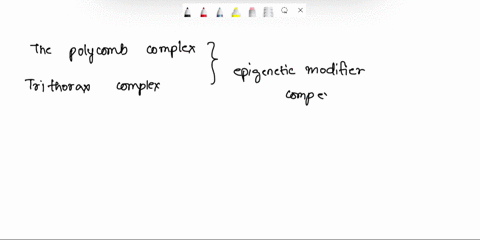 The polycomb complex
Trithorax complex
epigenetic modifier
compe